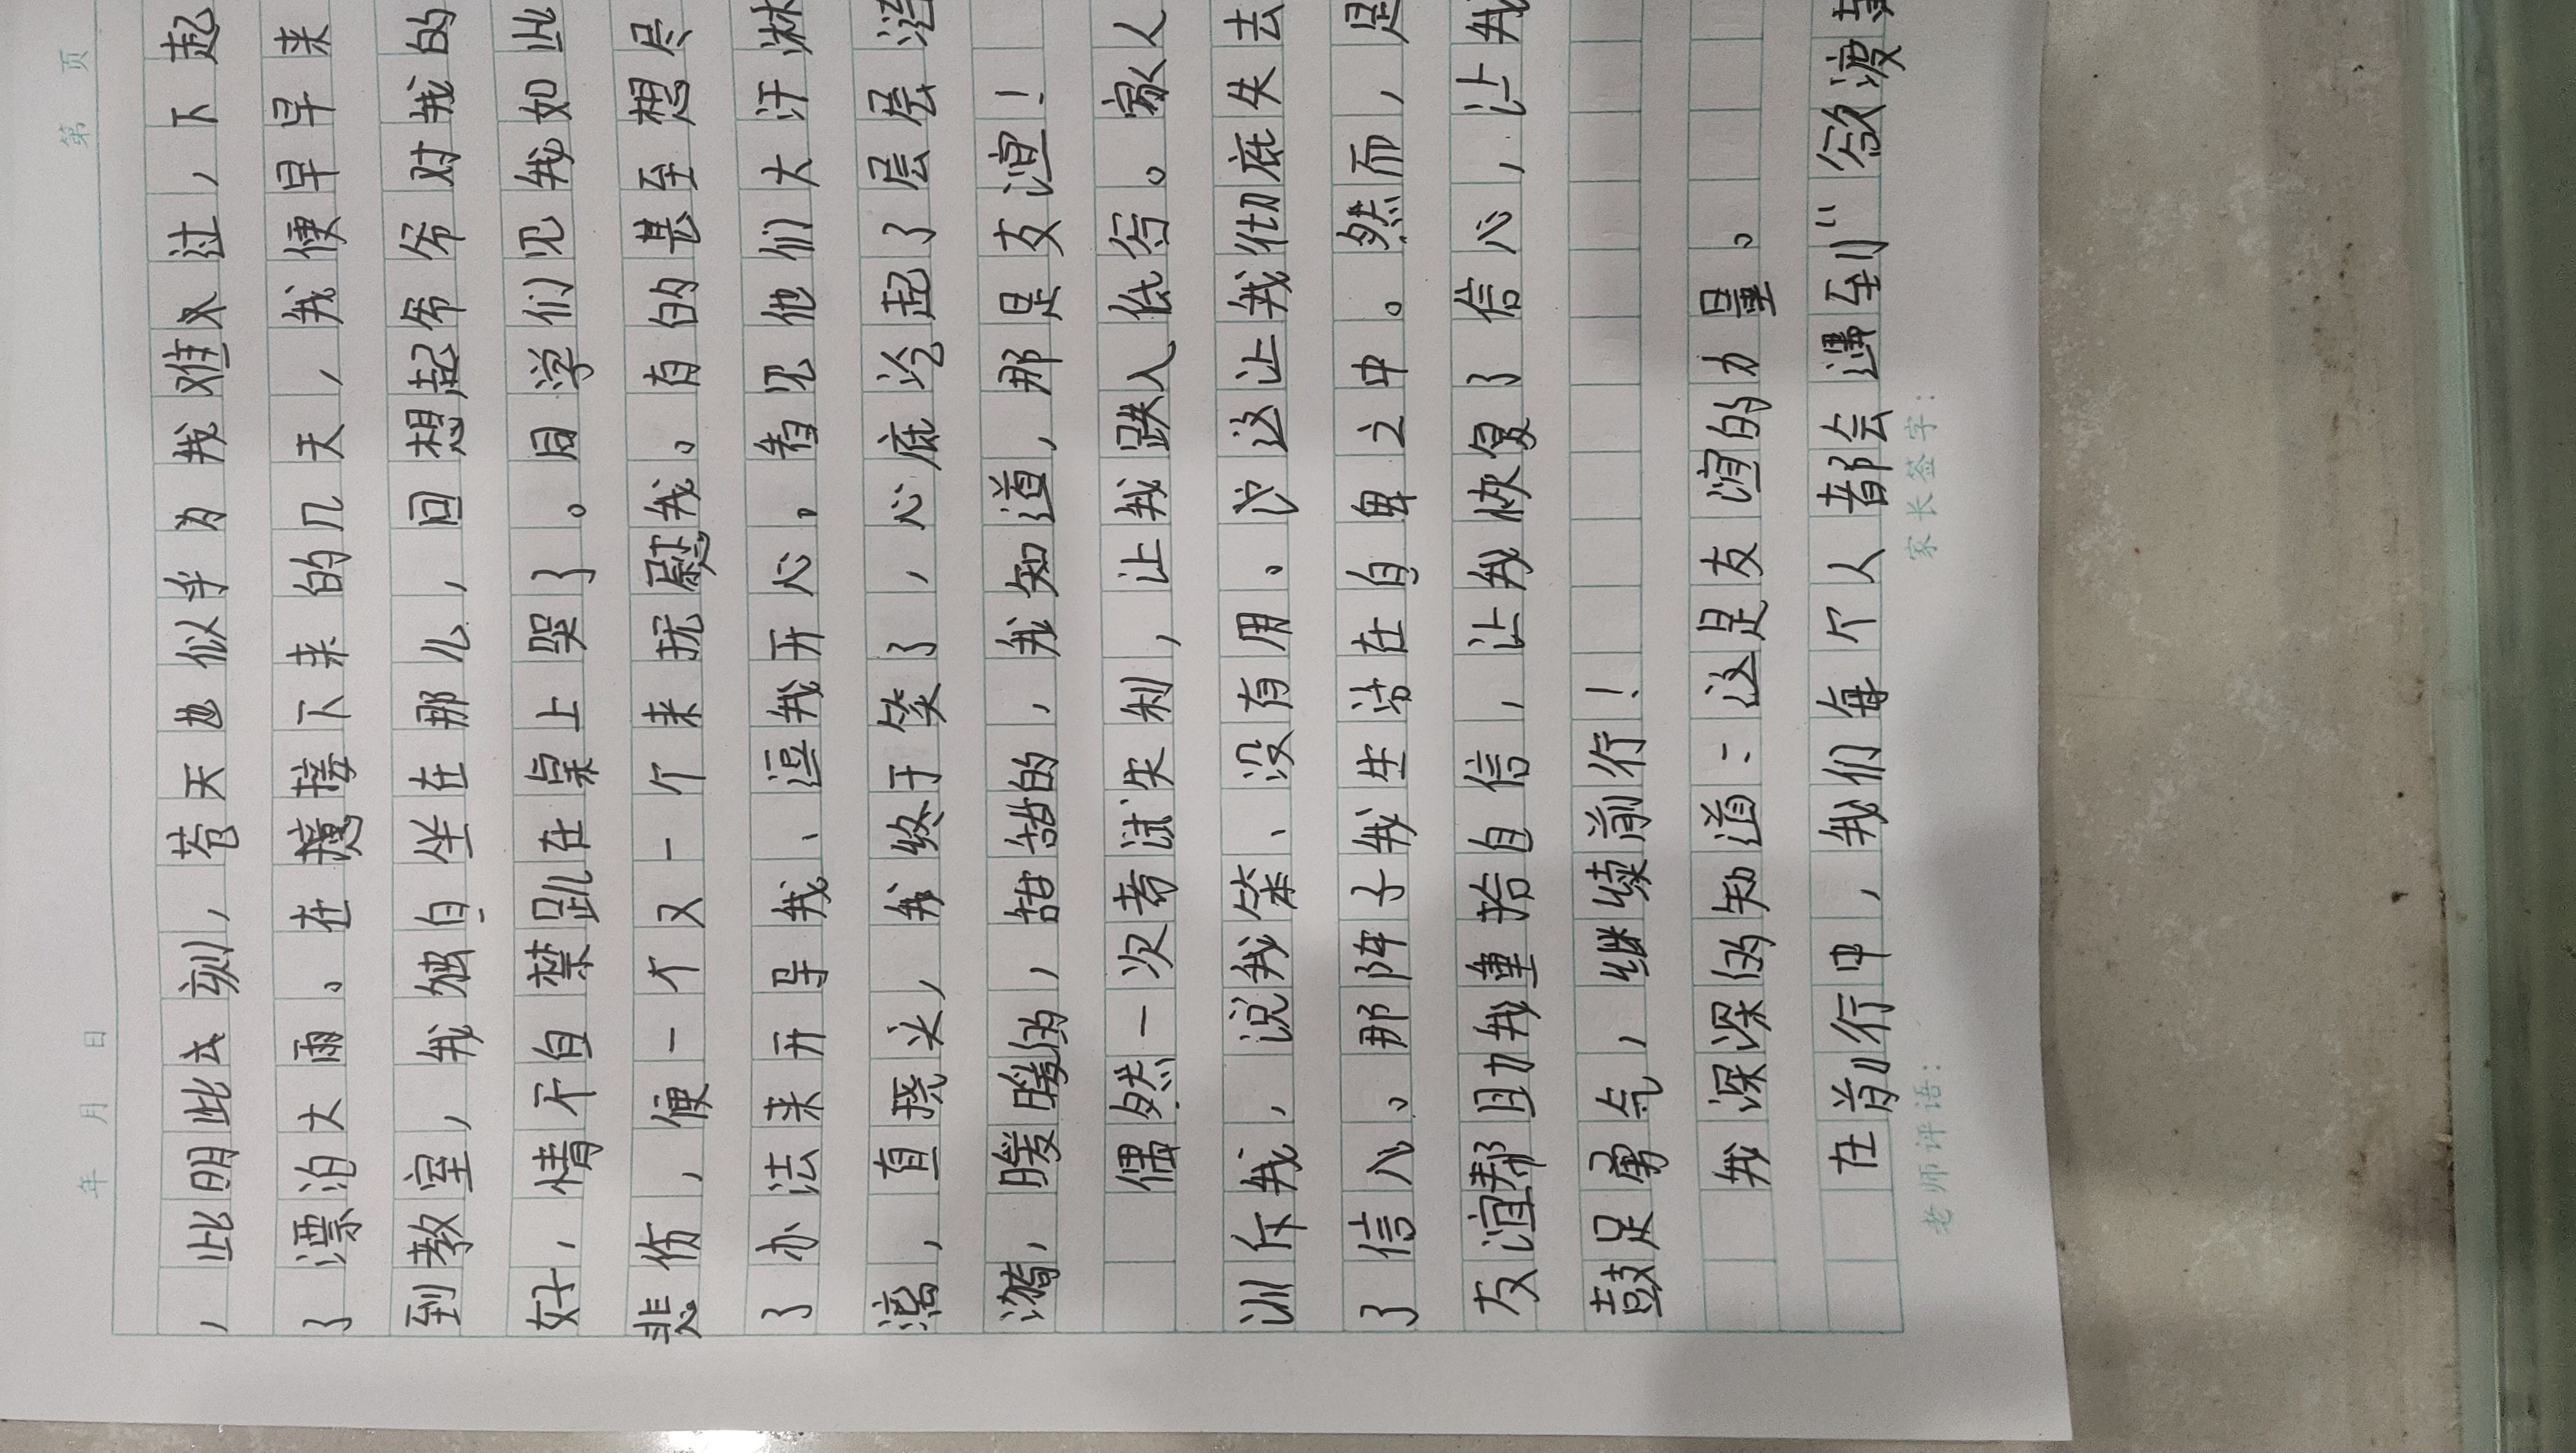 年 月 日 第 页
，此朋此去刻，苍天也似乎为我难过，下起
了漂泊大雨。在接下来的几天，我便早早来
到教室，我独自坐在那儿，回想起爷爷对我的
好，情不自禁趴在桌上哭了。同学们见我如此
悲伤，便一个又一个来扰慰我。有的甚至想尽
了办法来开导我、逗我开心。看见他们大汗淋
漓，直挠头，我终于笑了，心底泛起了层层涟
漪，暖暖的，甜甜的，我知道，那是友谊！
偶然一次考试失利，让我跌入低谷。家人
训斥我，说我笨、没有用。这让我彻底失去
了信心。那阵子我生活在自卑之中。然而，是
友谊帮助我重拾自信，让我恢复了信心，让我
鼓足勇气，继续前行！
我深深的知道：这是友谊的力量。
在前行中，我们每个人都会遇到“欲渡黄
老师评语： 家长签字：